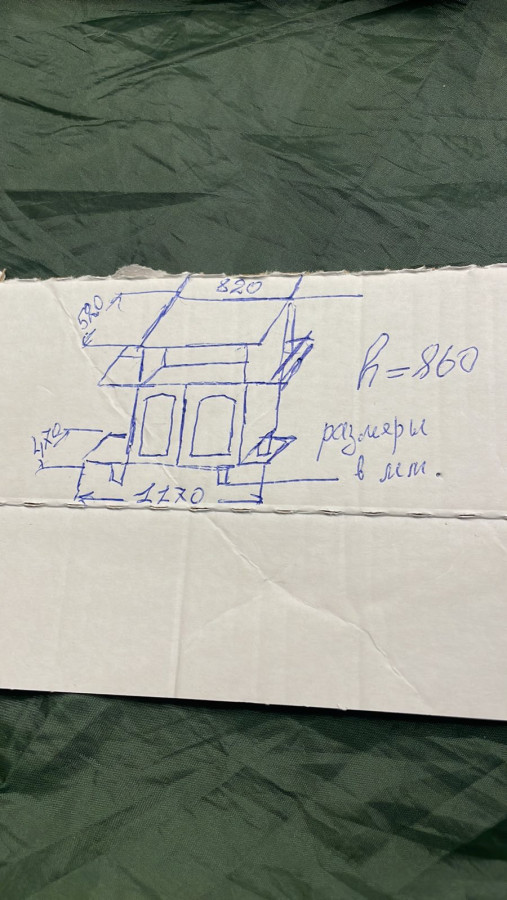 820
520
h=860
470
размеры
в мм.
1170